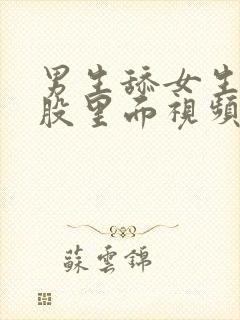 男生舔女生
股里面視頻
蘇雲錦